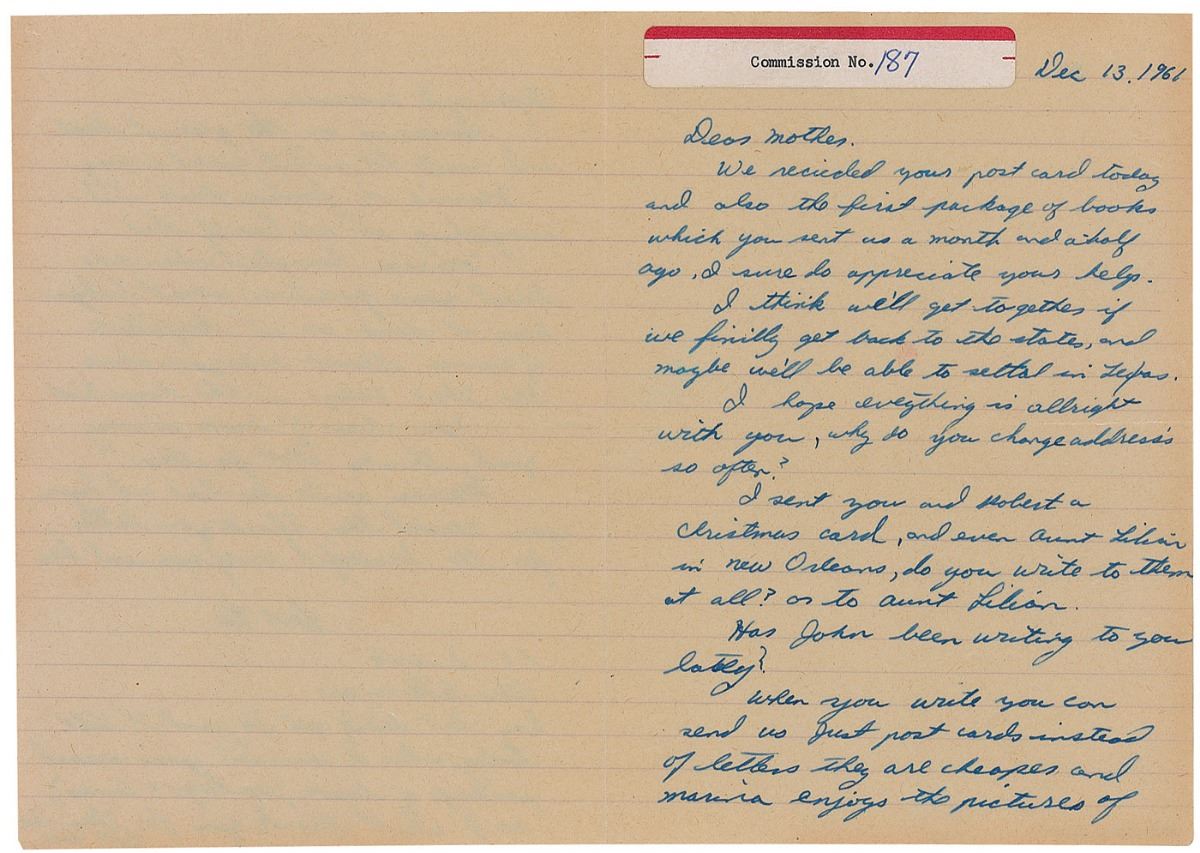 Commission No. 187
Dec 13, 1961
Dear Mother.
We recieded your post card today
and also the first package of books
which you sent us a month and a half
ago, I sure do appreciate your help.
I think we'll get together if
we finilly get back to the states, and
maybe we'll be able to settal in Texas.
I hope eveything is allright
with you, why do you change address's
so often?
I sent you and Robert a
christmas card, and even aunt Lilian
in new Orleans, do you write to them
at all? or to aunt Lilian.
Has John been writing to you
lately?
When you write you can
send us just post cards instead
of letters they are cheaper and
marina enjoys the pictures of